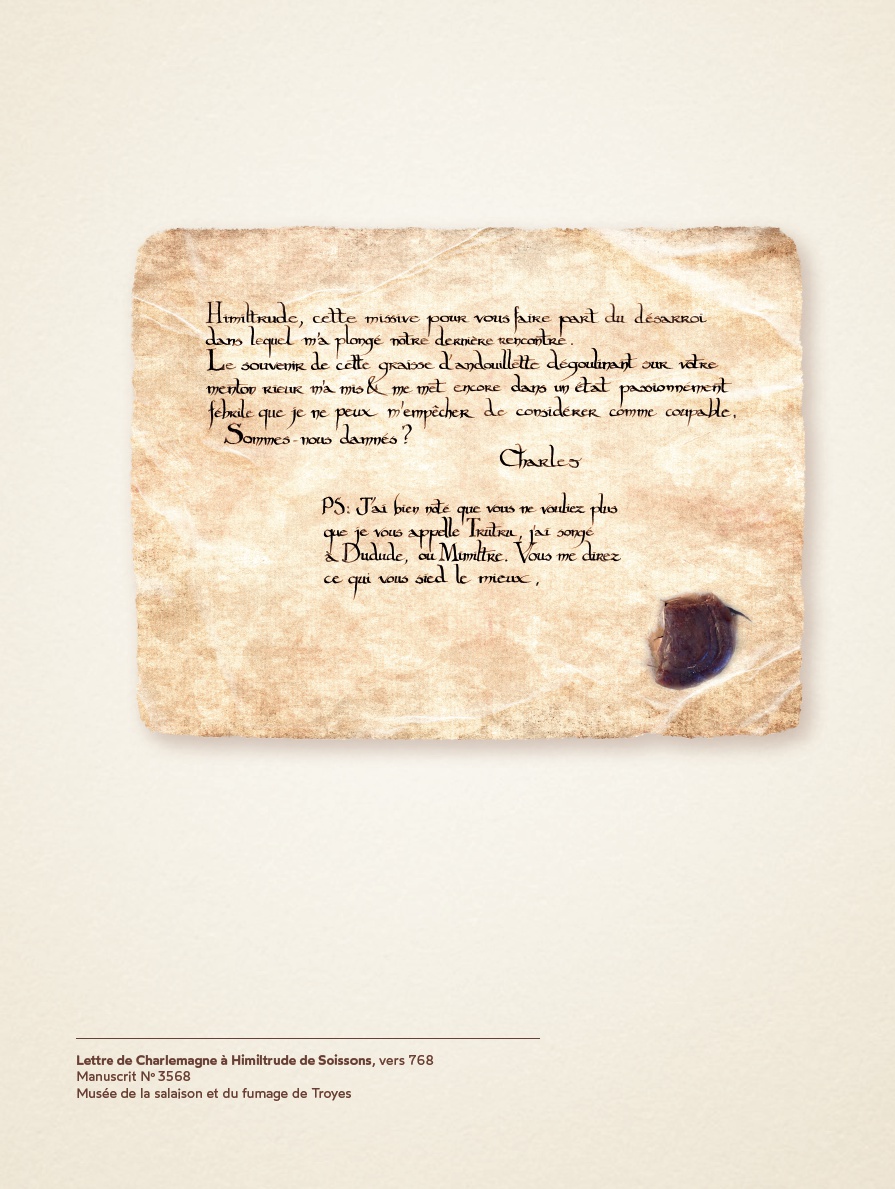 Himiltrude, cette missive pour vous faire part du désarroi
dans lequel m'a plongé nôtre dernière rencontre.
Le souvenir de cette graisse d'andouillette dégoulinant sur vôtre
menton rieur m'a mis & me met encore dans un état passionnément
fébrile que je ne peux m'empêcher de considérer comme coupable.
Sommes-nous damnés ?
Charles
PS : J'ai bien noté que vous ne vouliez plus
que je vous appelle Trutru, j'ai songé
à Dudude, ou Mimiltre. Vous me direz
ce qui vous sied le mieux.
Lettre de Charlemagne à Himiltrude de Soissons, vers 768
Manuscrit Nº 3568
Musée de la salaison et du fumage de Troyes